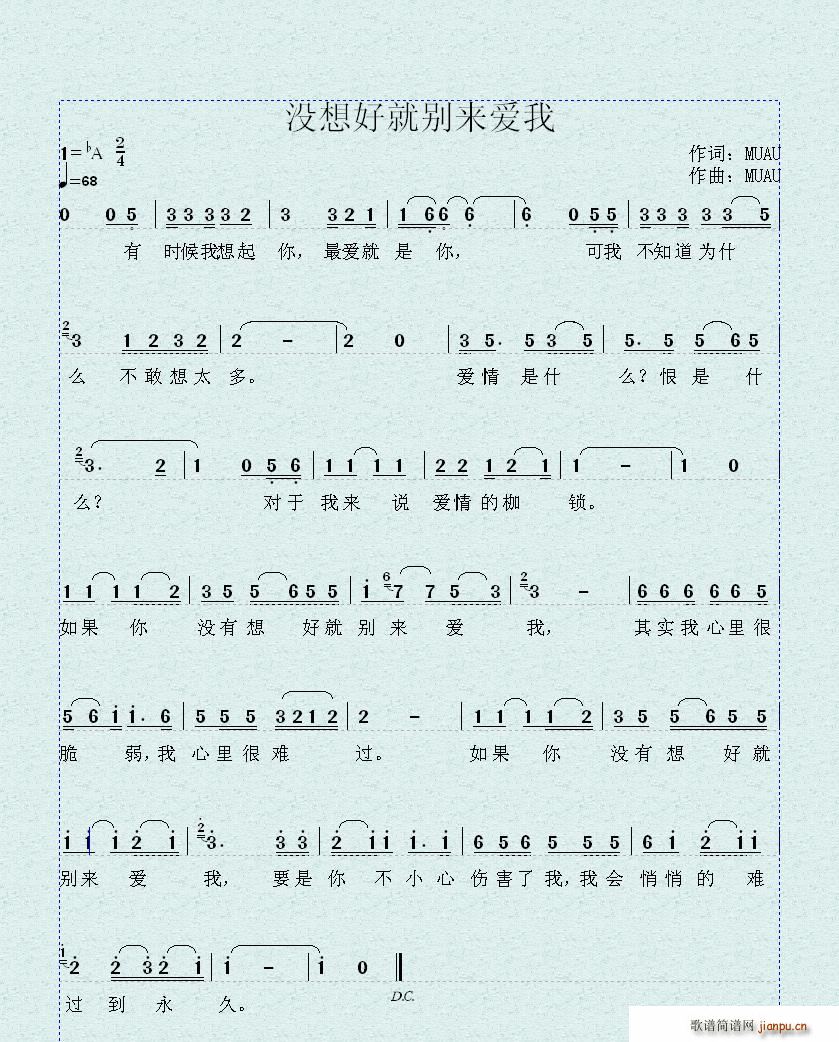 没想好就别来爱我
1=ᵇA 2/4
作词：MUAU
♩=68
作曲：MUAU
0 0 5 | 3 3 3 3 2 | 3 3 2 1 | 1 6 6 6 | 6 0 5 5 | 3 3 3 3 3 5
有 时候我想起 你，最爱就 是 你， 可我 不知道为什
2 3 1 2 3 2 | 2 - | 2 0 | 3 5. 5 3 5 | 5. 5 5 6 5
么 不敢想太 多。 爱情 是什 么？恨是 什
2 3. 2 | 1 0 5 6 | 1 1 1 1 | 2 2 1 2 1 | 1 - | 1 0
么？ 对于 我来 说 爱情的枷 锁。
1 1 1 1 2 | 3 5 5 6 5 5 | i 6 7 7 5 3 | 2 3 - | 6 6 6 6 6 5
如果 你 没有想 好就 别来 爱 我， 其实我心里很
5 6 i i. 6 | 5 5 5 3 2 1 2 | 2 - | 1 1 1 1 2 | 3 5 5 6 5 5
脆 弱，我 心里很难 过。 如果 你 没有想 好就
i i i 2 i | 2 3. 3 3 | 2 i i i. i | 6 5 6 5 5 5 | 6 i 2 i i
别来 爱 我， 要是你 不小心 伤害了我，我会 悄悄的 难
1 2 2 3 2 i | i - | i 0
过 到 永 久。
D.C.
歌谱简谱网 jianpu.cn